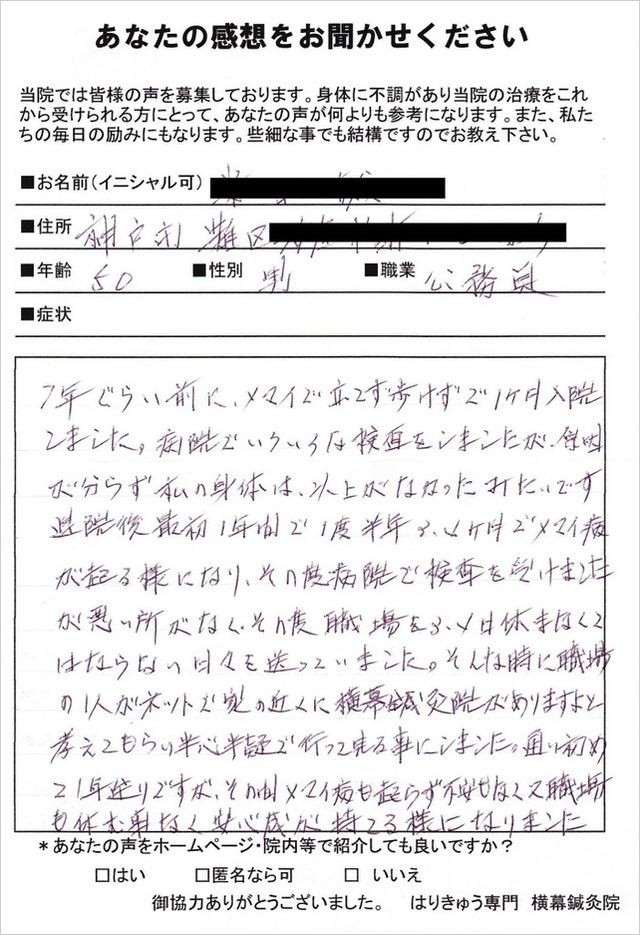 あなたの感想をお聞かせください
当院では皆様の声を募集しております。身体に不調があり当院の治療をこれ
から受けられる方にとって、あなたの声が何よりも参考になります。また、私た
ちの毎日の励みにもなります。些細な事でも結構ですのでお教え下さい。
■お名前(イニシャル可)
■住所 神戸市 灘区
■年齢 50 ■性別 男 ■職業 公務員
■症状
7年ぐらい前に、メマイで立てず歩けずで1ヶ月入院
しました。病院でいろいろな検査をしましたが、原因
が分らず私の身体は、以上がなかったみたいです
退院後最初1年間で1度半年3、4ヶ月でメマイ病
が起る様になり、その度病院で検査を受けました
が悪い所がなく、その度職場を3、4日休まなくて
はならない日々を送っていました。そんな時に職場
の1人がネットで家の近くに横幕鍼灸院がありますよと
考えてもらい半心半疑で行って見る事にしました。通い初め
て1年近りですが、その間メマイ病も起らず不安もなく又職場
も休む事なく安心感が持てる様になりました
*あなたの声をホームページ・院内等で紹介しても良いですか?
□はい □匿名なら可 □ いいえ
御協力ありがとうございました。 はりきゅう専門 横幕鍼灸院